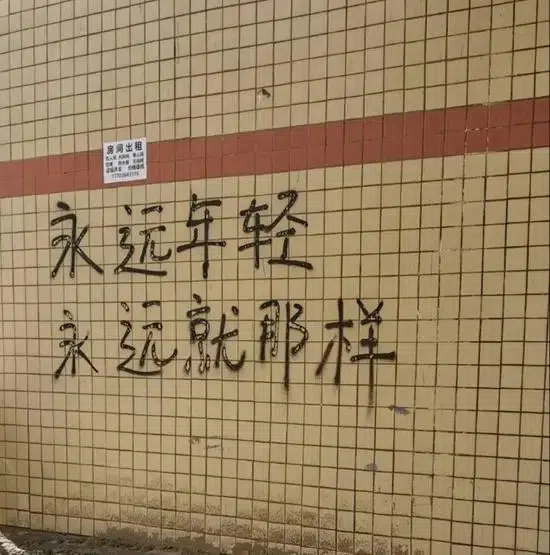 房间出租
永远年轻
永远就那样